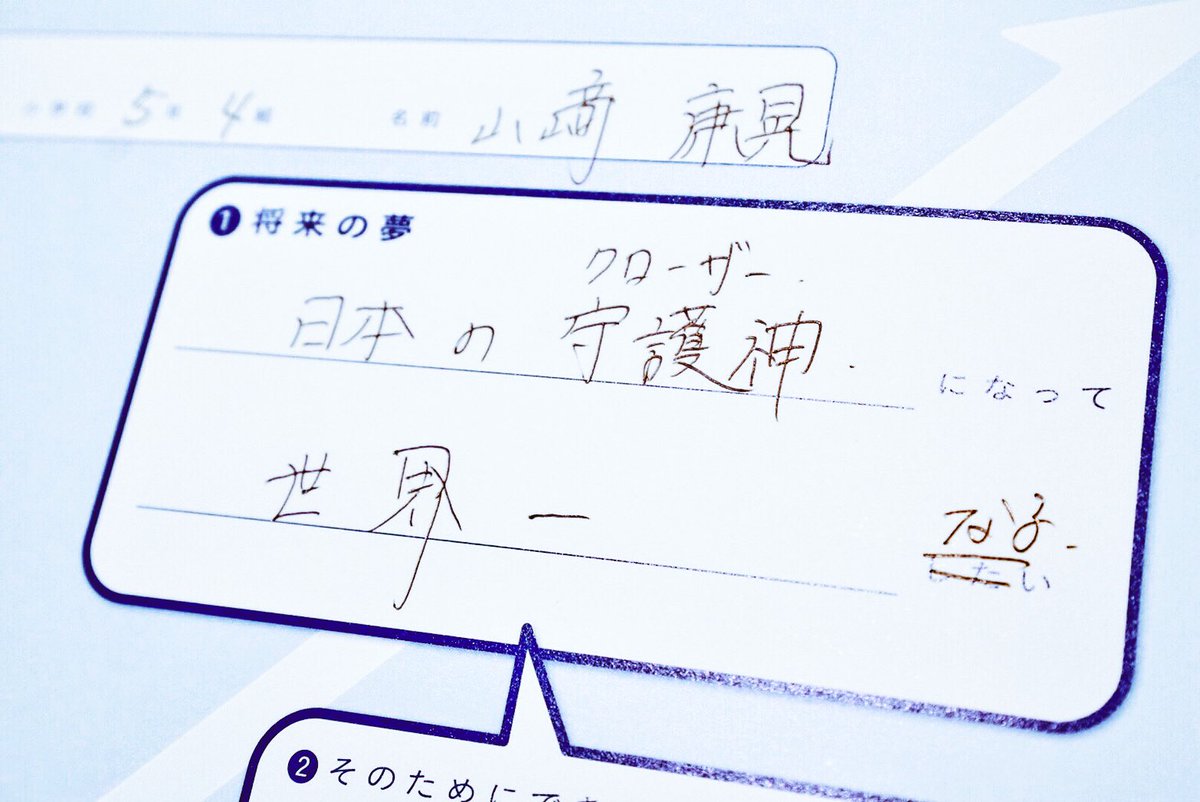 小学校 5年 4組 名前 山﨑 康晃
❶将来の夢
クローザー.
日本の守護神. になって
世界一 なる.
したい
❷そのためにでき